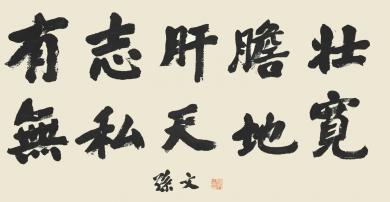 有志肝膽壯
無私天地寬
孫文